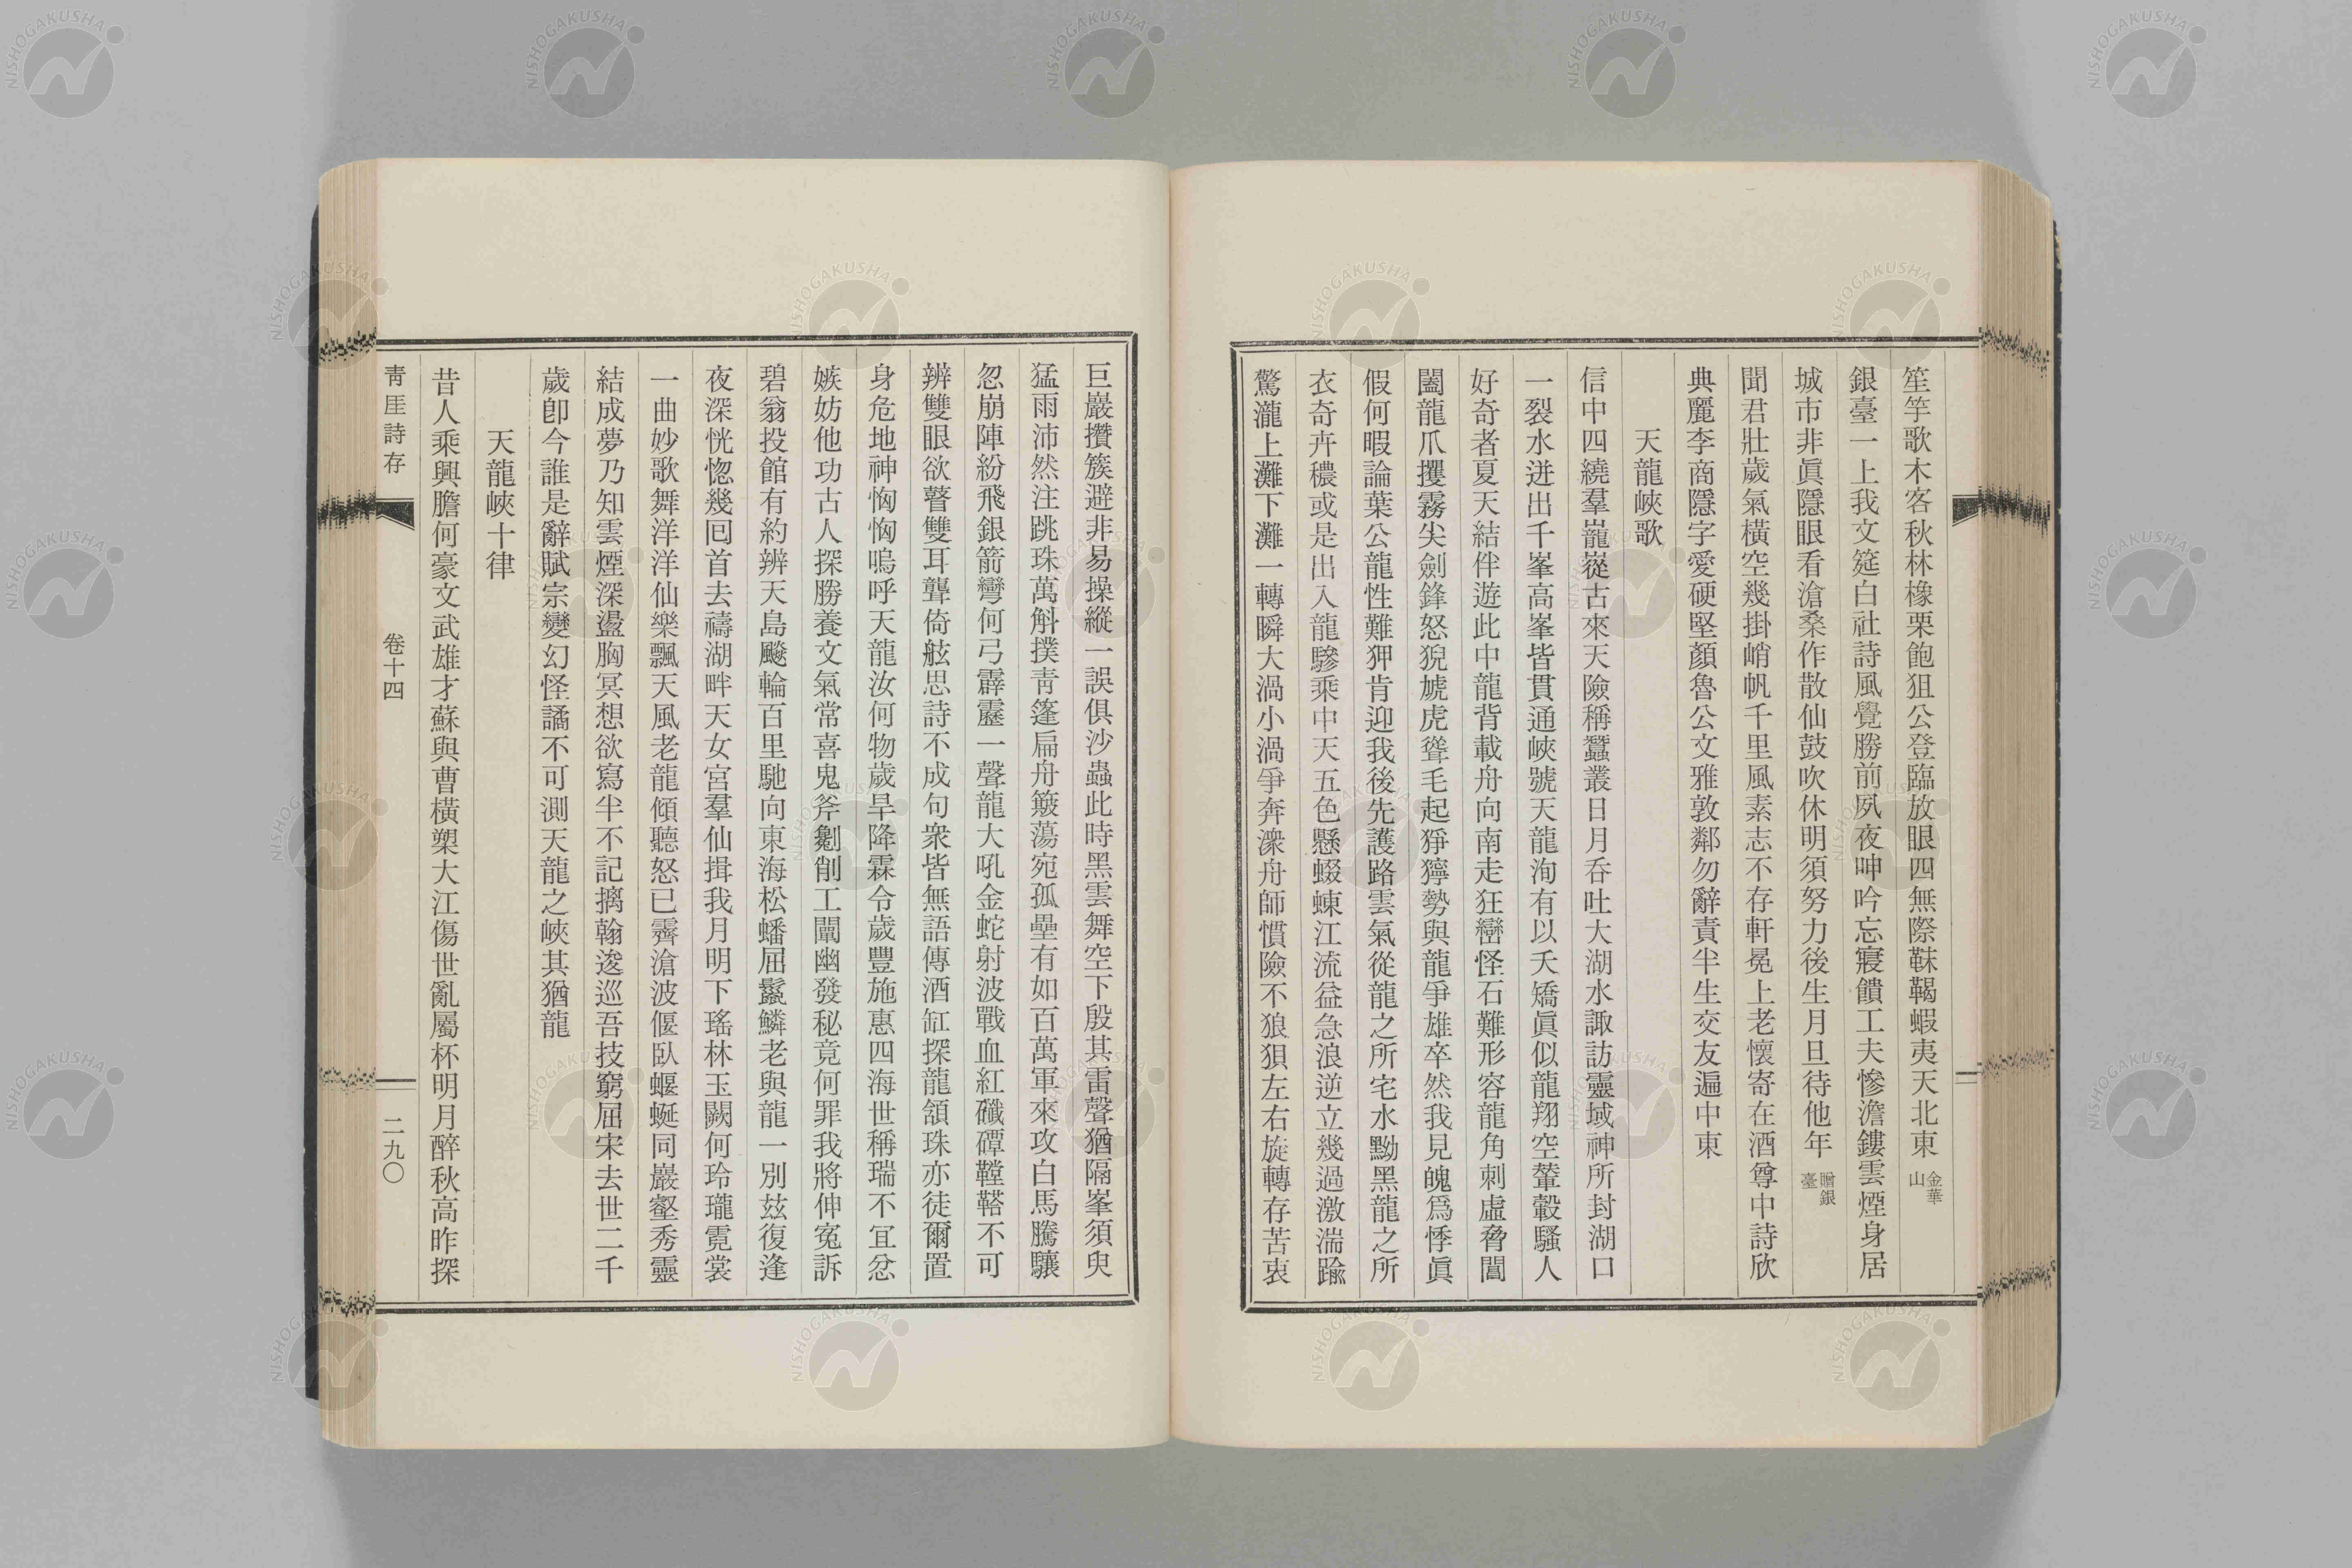 笙竽歌木客秋林橡栗飽狙公登臨放眼四無際靺鞨蝦夷天北東 金華山
銀臺一上我文筵白社詩風覺勝前夙夜呻吟忘寢饋工夫慘澹鏤雲煙身居
城市非眞隱眼看滄桑作散仙鼓吹休明須努力後生月旦待他年 贈銀臺
聞君壯歲氣橫空幾掛峭帆千里風素志不存軒冕上老懷寄在酒尊中詩欣
典麗李商隱字愛硬堅顏魯公文雅敦鄰勿辭責半生交友遍中東
天龍峽歌
信中四繞羣巃嵸古來天險稱蠶叢日月呑吐大湖水諏訪靈域神所封湖口
一裂水迸出千峯高峯皆貫通峽號天龍洵有以夭矯眞似龍翔空輦轂騷人
好奇者夏天結伴遊此中龍背載舟向南走狂巒怪石難形容龍角刺虛脅閶
闔龍爪攫霧尖劍鋒怒猊虓虎聳毛起猙獰勢與龍爭雄卒然我見魄爲悸眞
假何暇論葉公龍性難狎肯迎我後先護路雲氣從龍之所宅水黝黑龍之所
衣奇卉穠或是出入龍驂乘中天五色懸蝃蝀江流益急浪逆立幾過激湍踰
驚瀧上灘下灘一轉瞬大渦小渦爭奔潨舟師慣險不狼狽左右旋轉存苦衷
巨巖攢簇避非易操縱一誤俱沙蟲此時黑雲舞空下殷其雷聲猶隔峯須臾
猛雨沛然注跳珠萬斛撲靑篷扁舟簸蕩宛孤壘有如百萬軍來攻白馬騰驤
忽崩陣紛飛銀箭彎何弓霹靂一聲龍大吼金蛇射波戰血紅礟磹鞺鞳不可
辨雙眼欲瞀雙耳聾倚舷思詩不成句衆皆無語傳酒缸探龍頷珠亦徒爾置
身危地神恟恟嗚呼天龍汝何物歲旱降霖令歲豐施惠四海世稱瑞不宜忿
嫉妨他功古人探勝養文氣常喜鬼斧劖削工闡幽發秘竟何罪我將伸冤訴
碧翁投館有約辨天島飈輪百里馳向東海松蟠屈鬣鱗老與龍一別玆復逢
夜深恍惚幾囘首去禱湖畔天女宮羣仙揖我月明下瑤林玉闕何玲瓏霓裳
一曲妙歌舞洋洋仙樂飄天風老龍傾聽怒已霽滄波偃臥蝘蜒同巖壑秀靈
結成夢乃知雲煙深盪胸冥想欲寫半不記摛翰逡巡吾技窮屈宋去世二千
歲卽今誰是辭賦宗變幻怪譎不可測天龍之峽其猶龍
天龍峽十律
昔人乘興膽何豪文武雄才蘇與曹橫槊大江傷世亂屬杯明月醉秋高昨探
靑厓詩存 卷十四 二九〇